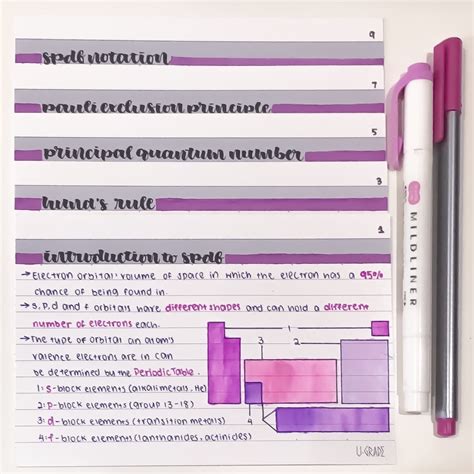 9
spdf notation
7
pauli exclusion principle
5
principal quantum number
3
hund's rule
1
introduction to spdf
→ Electron orbital: volume of space in which the electron has a 95%
chance of being found in.
→ s, p, d and f orbitals have different shapes and can hold a different
number of electrons each.
→ The type of orbital an atom's
valence electrons are in can
be determined by the Periodic Table.
1: s-block elements (alkali metals, He)
2: p-block elements (group 13-18)
3: d-block elements (transition metals)
4: f-block elements (lanthanides, actinides)
1
3
2
4
U-GRADE
MILDLINER